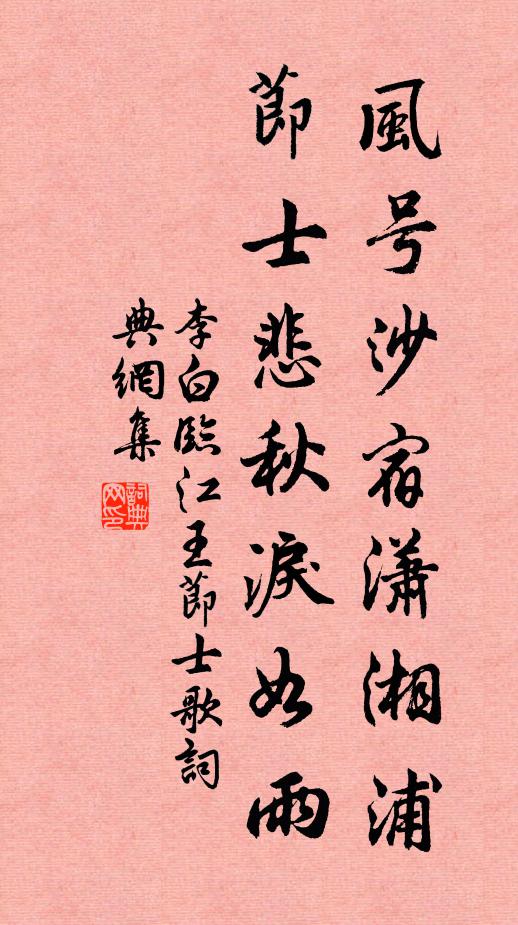 風号沙宿瀟湘浦
節士悲秋淚如雨
李白臨江王節士歌詞
典網集
詞典
网印